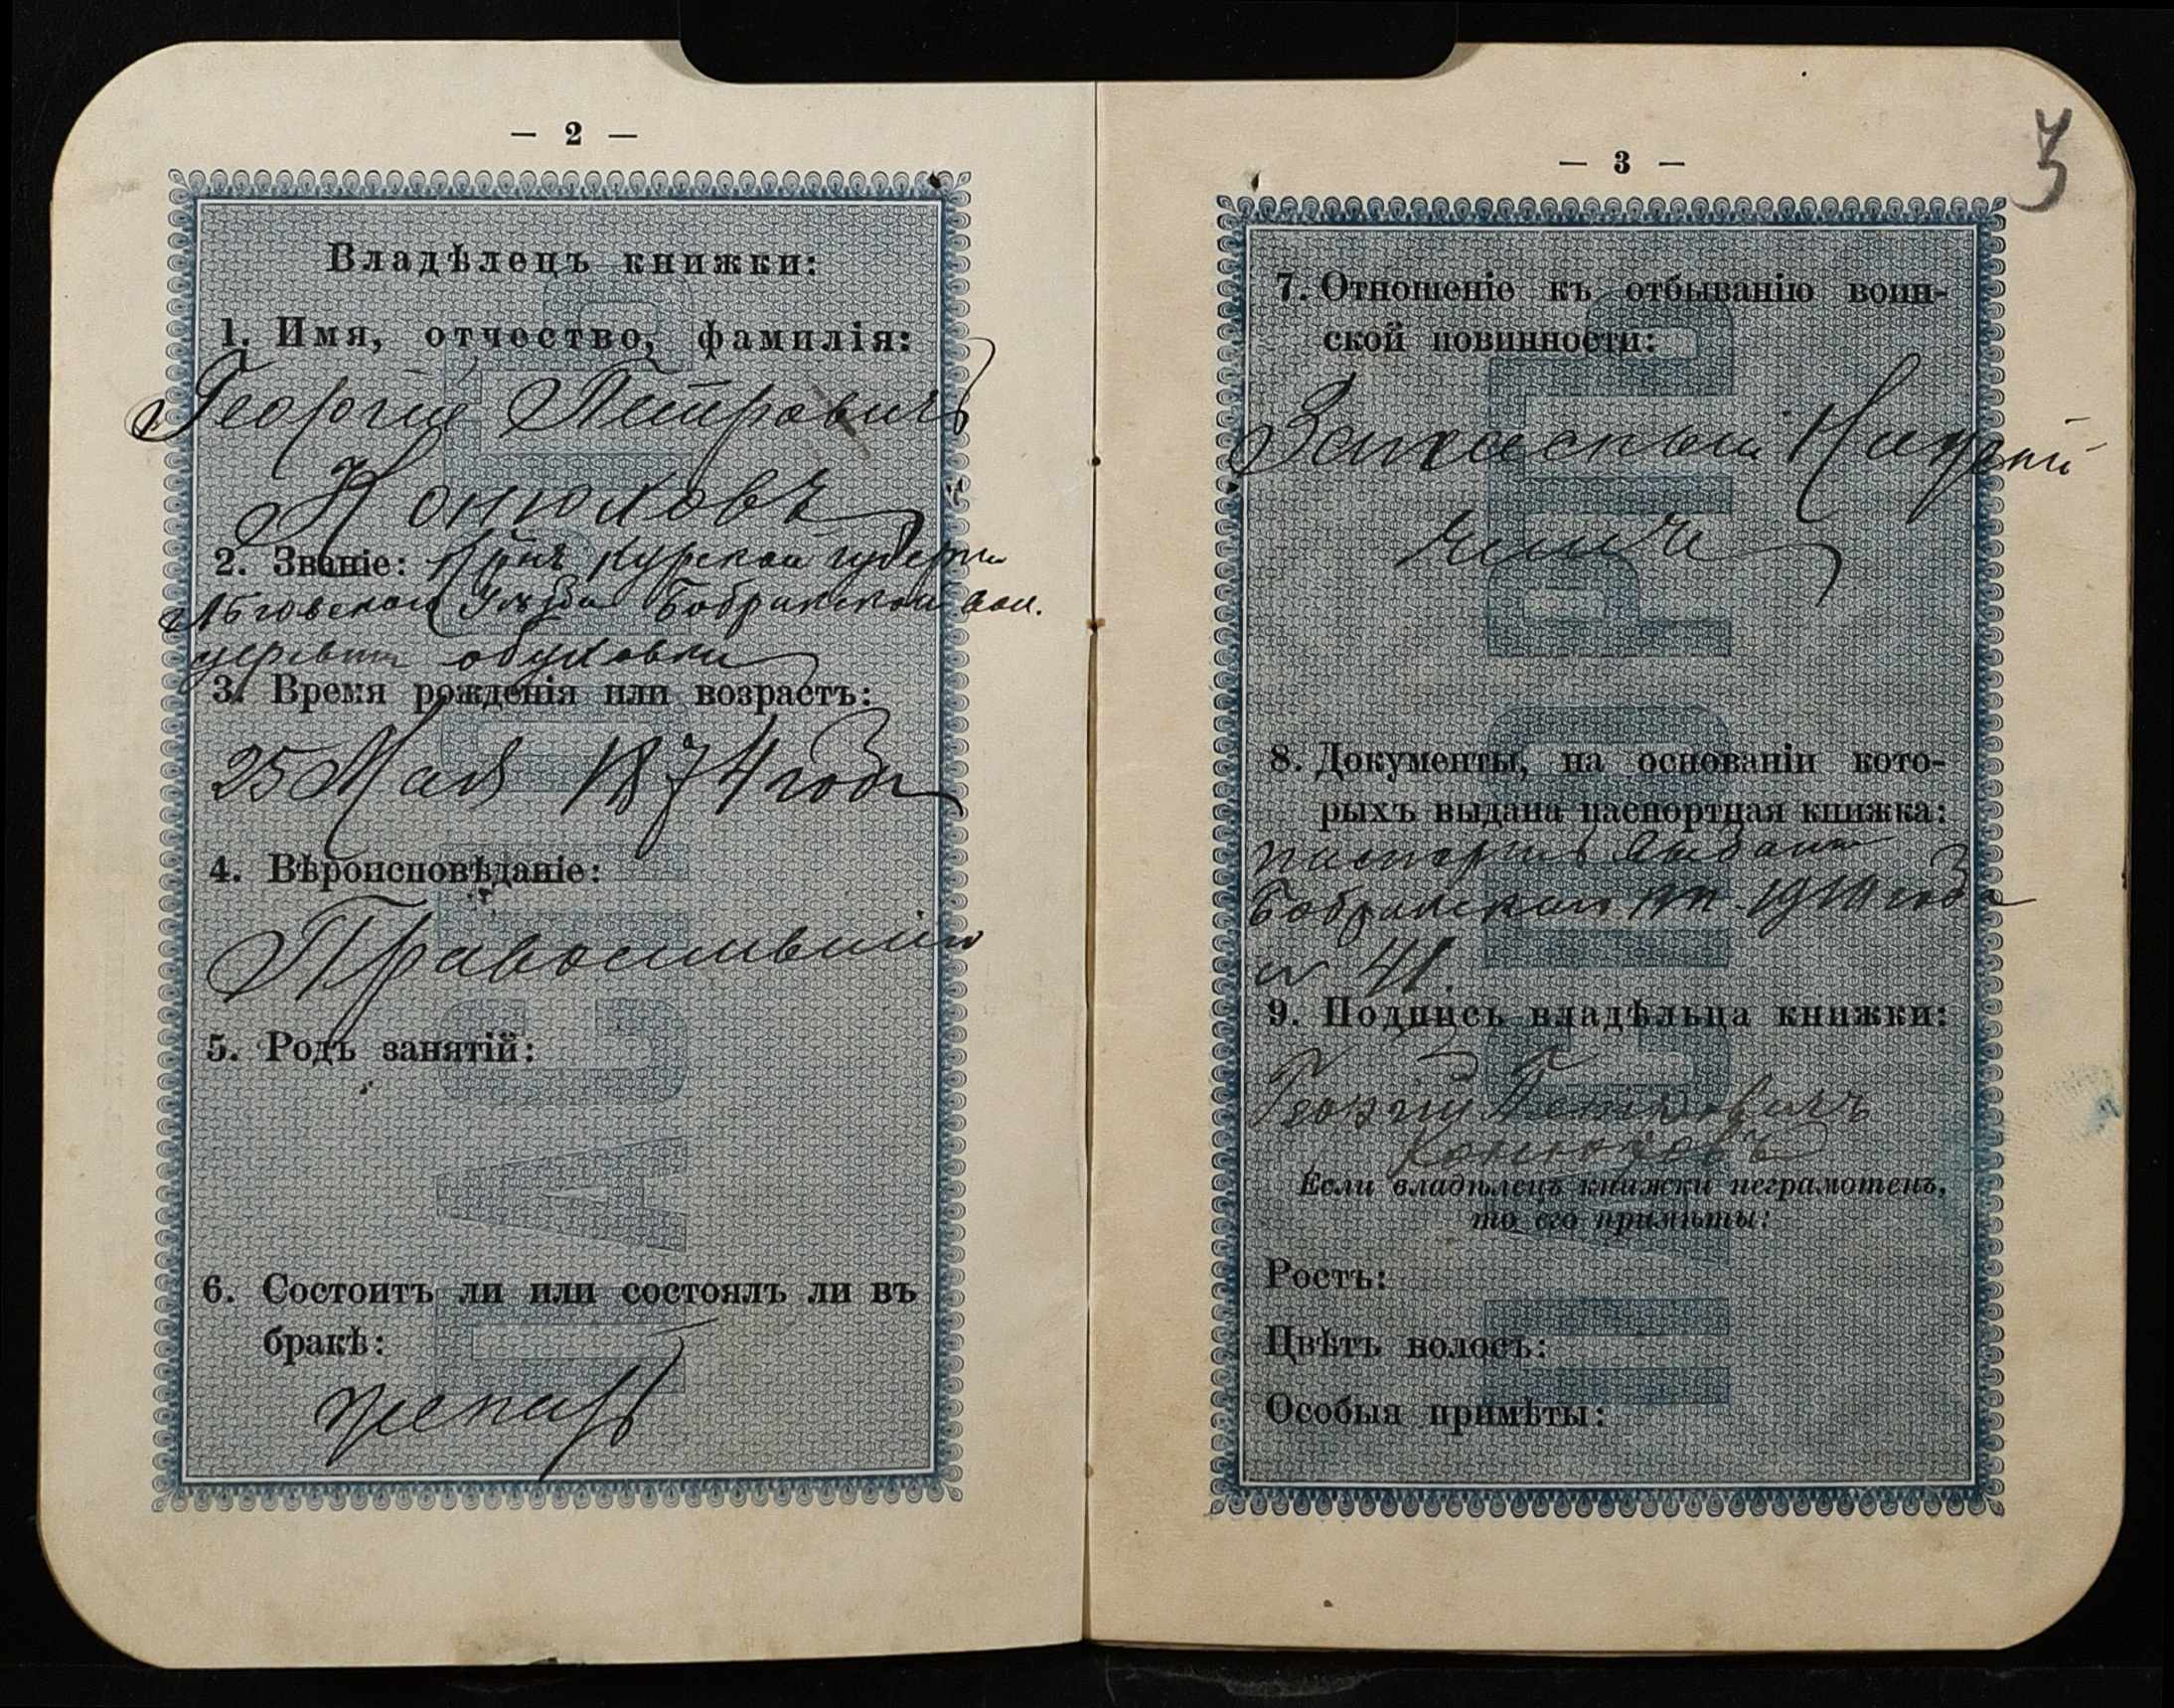 — 2 —
Владѣлецъ книжки:
1. Имя, отчество, фамилія:
Георгій Петровичъ
Конюховъ
2. Званіе: Кр-нъ Курской губерніи
Льговскаго Уѣзда Бобрикской вол.
деревни обуховки
3. Время рожденія или возрастъ:
25 Мая 1874 года
4. Вѣроисповѣданіе:
Православный
5. Родъ занятій:
6. Состоитъ ли или состоялъ ли въ
бракѣ:
женатъ
3
— 3 —
7. Отношеніе къ отбыванію воин-
ской повинности:
Запасный
8. Документы, на основаніи кото-
рыхъ выдана паспортная книжка:
паспортъ выдан
Бобрикскаго года
№ 41.
9. Подпись владѣльца книжки:
Георгій Петровичъ
Конюховъ
Если владѣлецъ книжки неграмотенъ,
то его примѣты:
Ростъ:
Цвѣтъ волосъ:
Особыя примѣты:
ПАСПОРТЪ
ПАСПОРТЪ